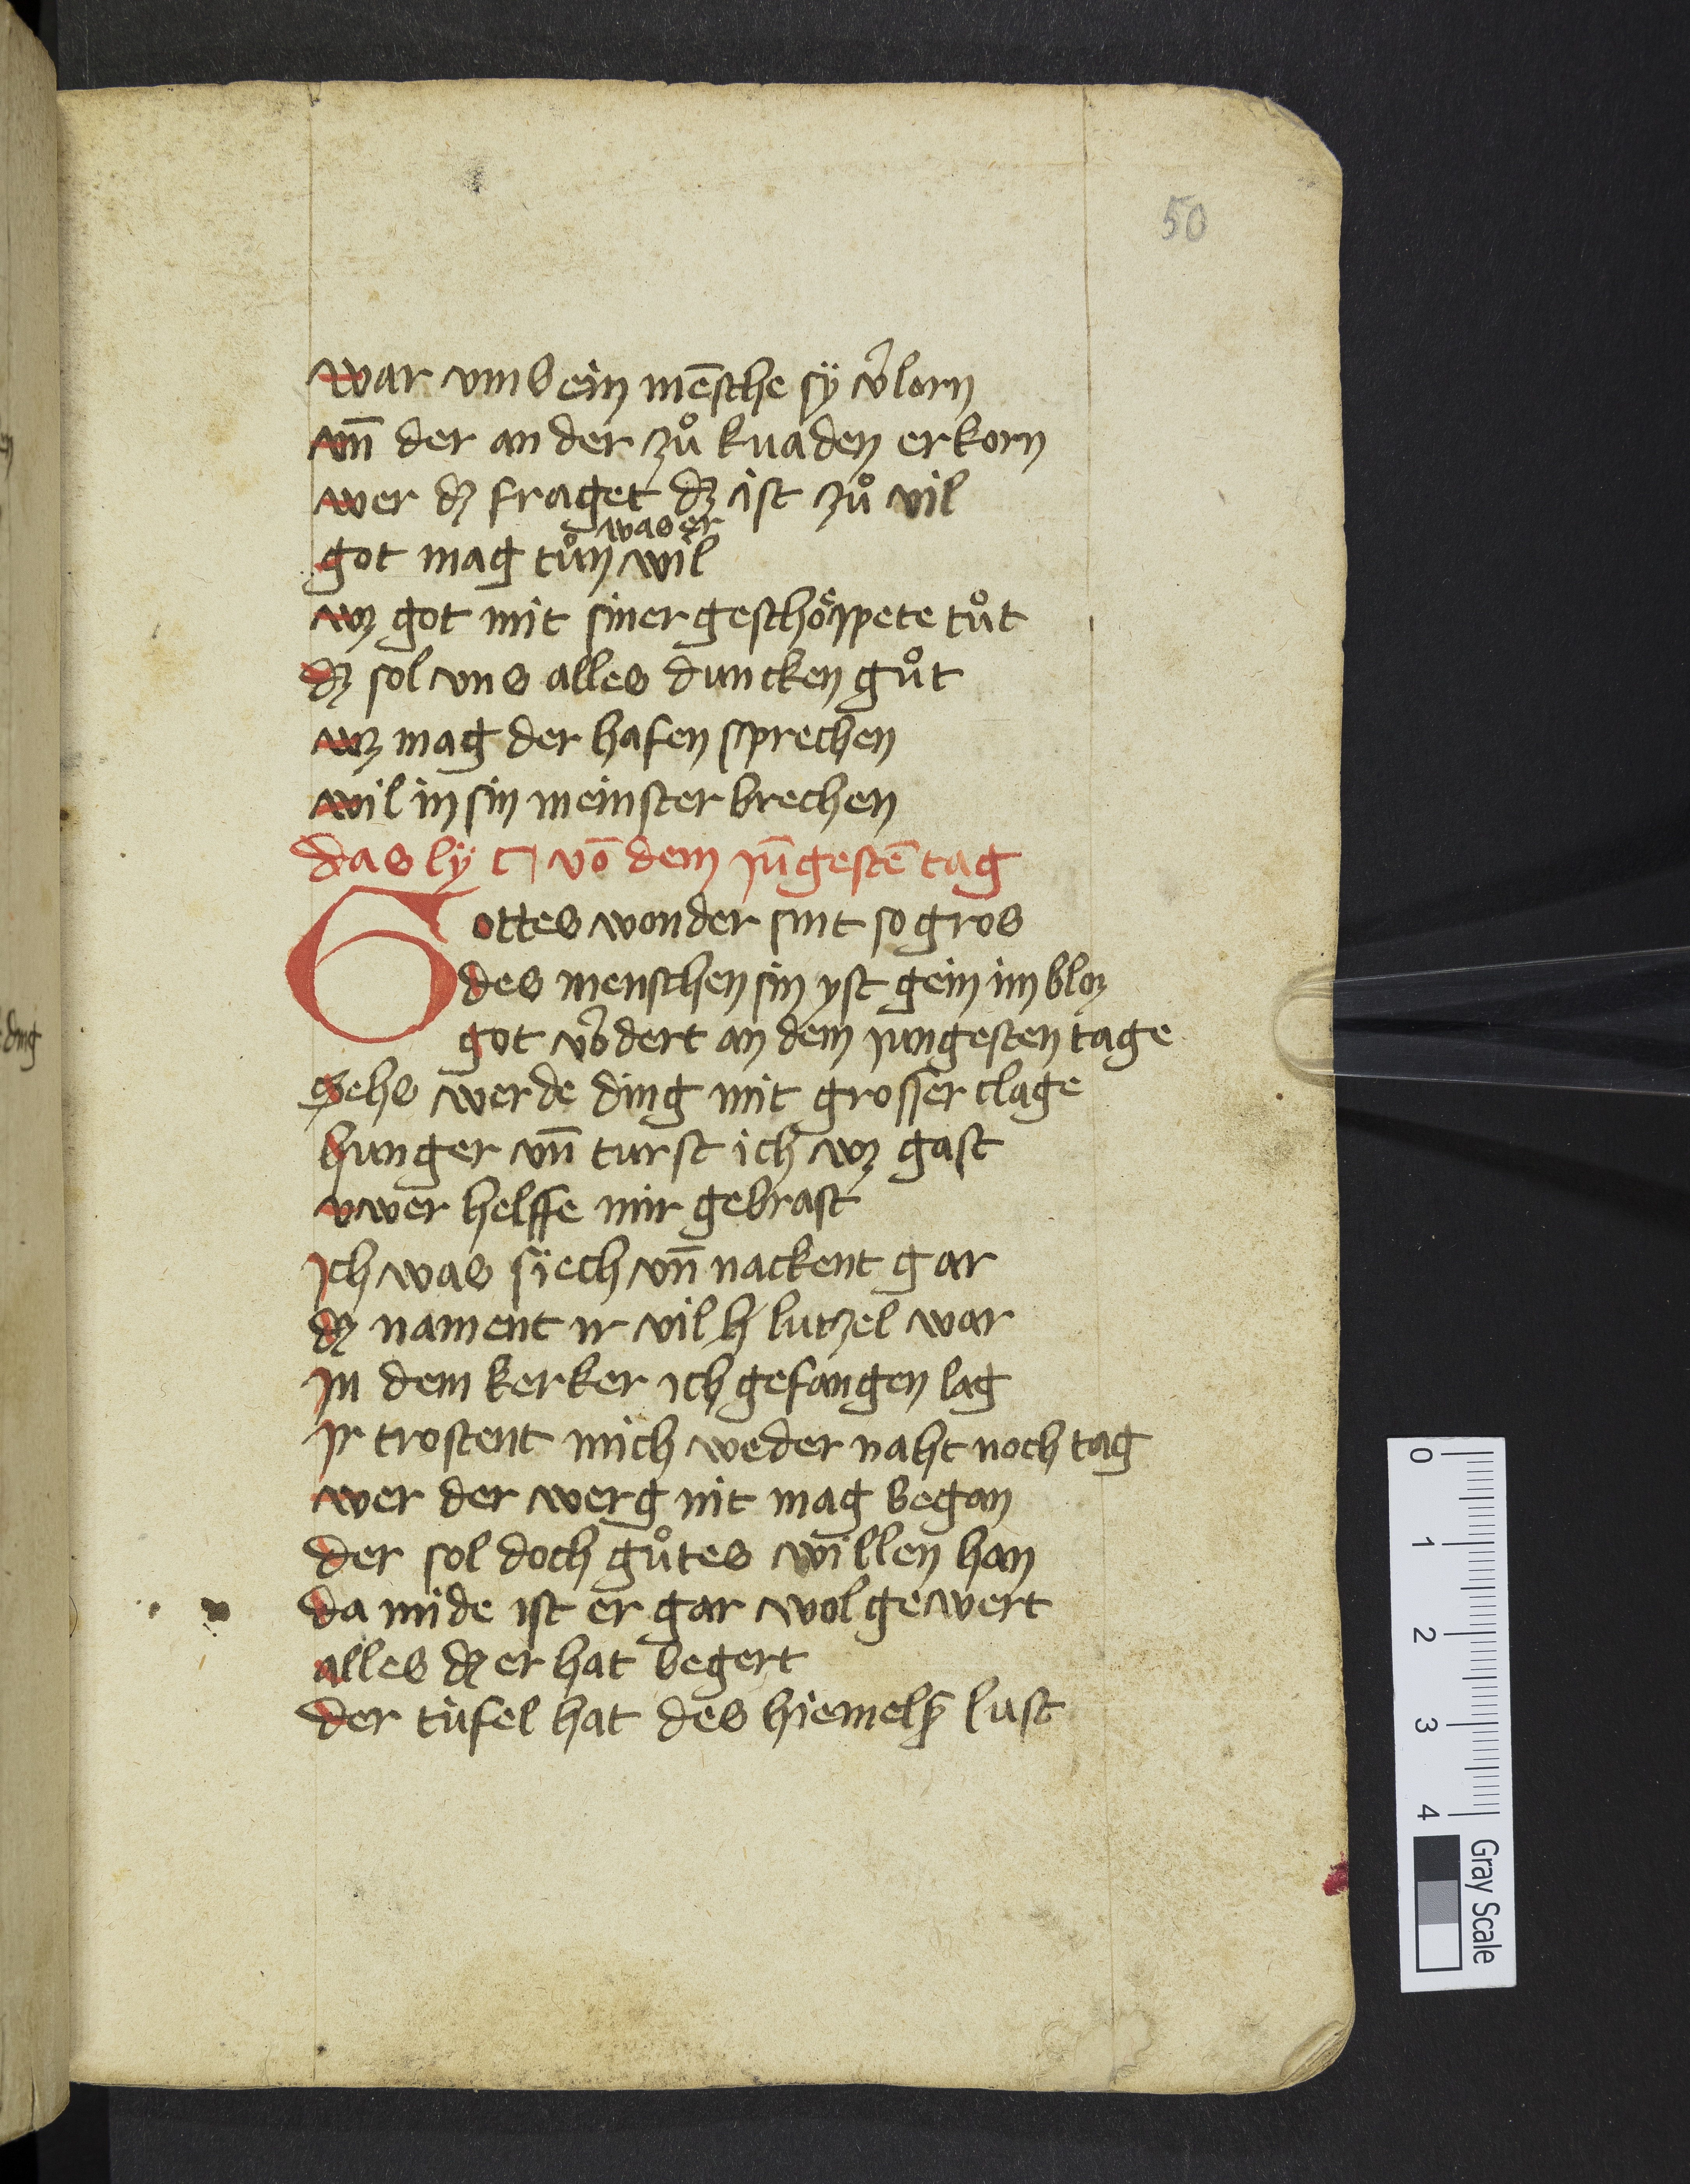 50
war vmb ein mēsche sÿ v̾lorn
vn̄ der an der zů knaden erkorn
wer dz fraget dz ist zů vil
was er
got mag tůn wil
wz got mit siner geschöppete tůt
dz sol vns alles duncken gůt
wz mag der hafen sprechen
wil in sin meinster brechen
das lÿ c⁊ vō dem jūgestē tag
Gottes wonder sint so gros
des menschen sin yst gein im bloz
got v̾dert an dem jungesten tage
sehs werde ding mit grosser clage
hunger vn̄ turst ich wz gast
vwer helffe mir gebrast
Jch was sÿech vn̄ nackent gar
dz nament ir vil lutzel war
Jn dem kerker ich gefangen lag
Jr trostent mich weder naht noch tag
wer der werg nit mag began
der sol doch gůtes willen han
da mide ist er gar wol gewert
alles dz er hat begert
der tufel hat des hiemelß lust
0
1
2
3
4
Gray Scale